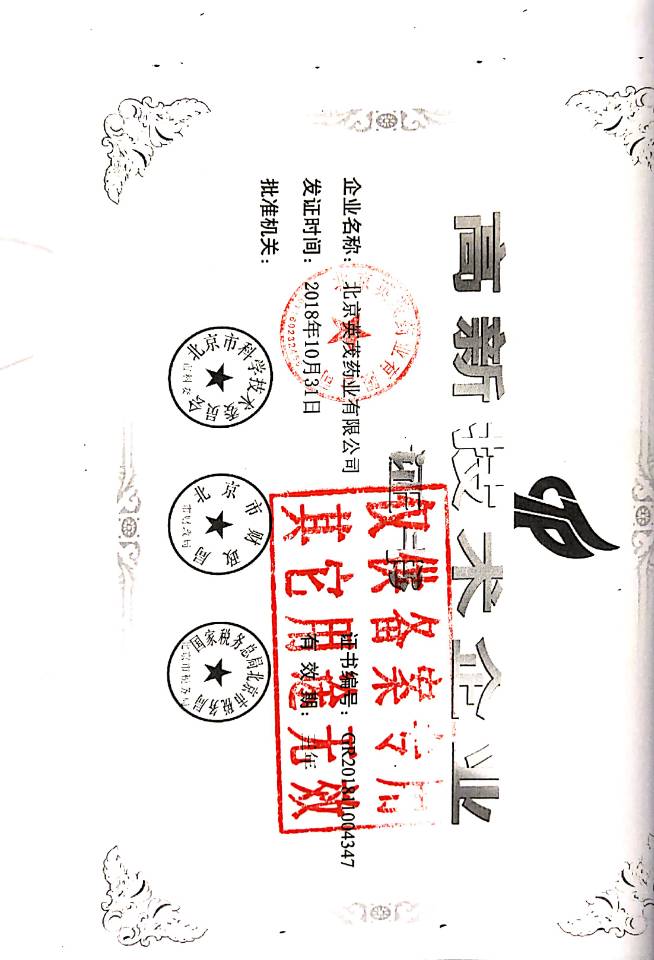 高新技术企业
证书
企业名称：北京英茂药业有限公司
证书编号：GR201811004347
发证时间：2018年10月31日
有效期：三年
批准机关：
北京市科学技术委员会
北京市财政局
国家税务总局北京市税务局
仅供备案专用
其它用途无效